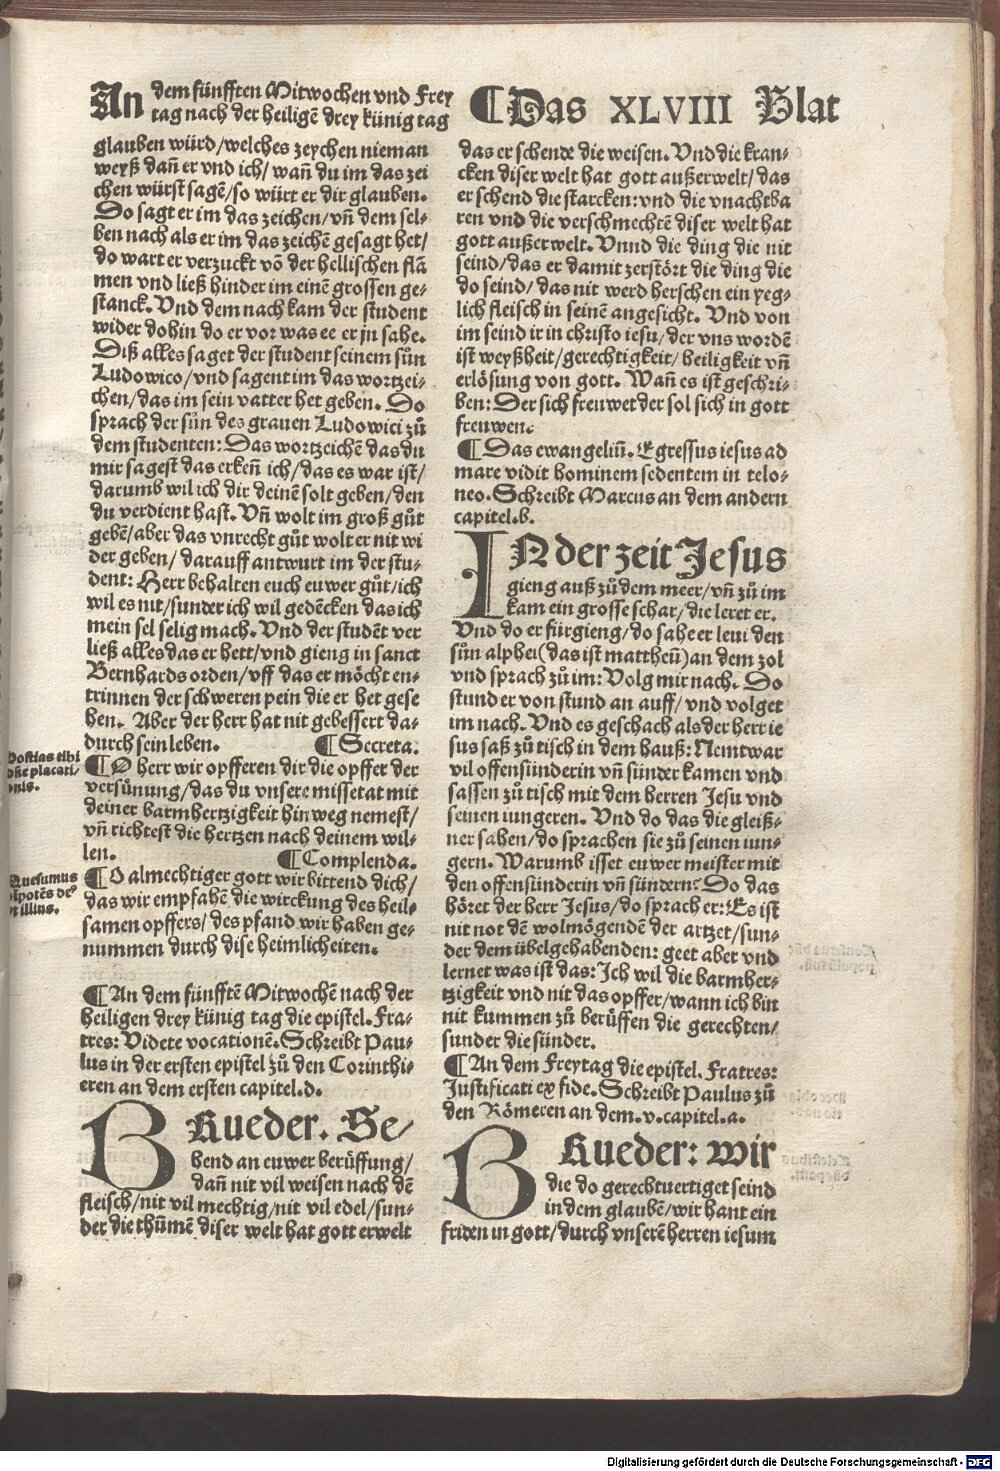 An dem fünfften Mitwochen vnd Frey
tag nach der heiligẽ drey künig tag
¶ Das XLVIII Blat
glauben würd/welches zeychen nieman
weyß dañ er vnd ich/wañ du im das zei
chen würst sagẽ/so würt er dir glauben.
Do sagt er im das zeichen/vñ dem sel-
ben nach als er im das zeichẽ gesagt het/
do wart er verzuckt võ der hellischen flã
men vnd ließ hinder im einẽ grossen ge-
stanck. Vnd dem nach kam der student
wider dohin do er vor was ee er jn sahe.
Diß alles saget der student seinem sůn
Ludowico/vnd sagent im das wortzei-
chen/das im sein vatter het geben. Do
sprach der sůn des grauen Ludowici zů
dem studenten: Das wortzeichẽ das du
mir sagest das erkeñ ich/das es war ist/
darumb wil ich dir deinẽ solt geben/den
du verdient hast. Vñ wolt im groß gůt
gebẽ/aber das vnrecht gůt wolt er nit wi
der geben/darauff antwurt im der stu-
dent: Herr behalten euch euwer gůt/ich
wil es nit/sunder ich wil gedẽcken das ich
mein sel selig mach. Vnd der studẽt ver
ließ alles das er hett/vnd gieng in sanct
Bernhards orden/vff das er möcht en-
trinnen der schweren pein die er het gese
hen. Aber der herr hat nit gebessert da-
durch sein leben. ¶ Secreta.
Hostias tibi
dñe placati/
onis.
¶ O herr wir opfferen dir die opffer der
versünung/das du vnsere missetat mit
deiner barmhertzigkeit hinweg nemest/
vñ richtest die hertzen nach deinem wil-
len. ¶ Complenda.
Quesumus
¶ O almechtiger gott wir bittend dich/
das wir empfahẽ die wirckung des heil-
samen opffers/des pfand wir haben ge-
nummen durch dise heimlicheiten.
¶ An dem fünfftẽ Mitwochẽ nach der
heiligen drey künig tag die epistel. Fra-
tres: Videte vocationẽ. Schreibt Pau-
lus in der ersten epistel zů den Corinthi-
eren an dem ersten capitel.d.
BRueder. Se/
hend an euwer berüffung/
dañ nit vil weisen nach dẽ
fleisch/nit vil mechtig/nit vil edel/sun-
der die thũmẽ diser welt hat gott erwelt
das er schende die weisen. Vnd die kran-
cken diser welt hat gott außerwelt/das
er schend die starcken: vnd die vnachtba
ren vnd die verschmechtẽ diser welt hat
gott außerwelt. Vnnd die ding die nit
seind/das er damit zerstört die ding die
do seind/das nit werd herschen ein yeg-
lich fleisch in seinẽ angesicht. Vnd von
im seind ir in christo iesu/der vns wordẽ
ist weyßheit/gerechtigkeit/heiligkeit vñ
erlösung von gott. Wañ es ist geschri-
ben: Der sich freuwet der sol sich in gott
freuwen.
¶ Das ewangeliũ. Egressus iesus ad
mare vidit hominem sedentem in telo-
neo. Schreibt Marcus an dem andern
capitel.b.
IN der zeit Jesus
gieng auß zů dem meer/vñ zů im
kam ein grosse schar/die leret er.
Vnd do er fürgieng/do sahe er leui den
sůn alphei(das ist mattheũ)an dem zol
vnd sprach zů im: Volg mir nach. Do
stund er von stund an auff/vnd volget
im nach. Vnd es geschach als der herr ie
sus saß zů tisch in dem hauß: Nemt war
vil offensünderin vñ sünder kamen vnd
sassen zů tisch mit dem herren Jesu vnd
seinen iungeren. Vnd do das die gleiß-
ner sahen/do sprachen sie zů seinen iun-
gern. Warumb isset euwer meister mit
den offensünderin vñ sündern? Do das
höret der herr Jesus/do sprach er: Es ist
nit not dẽ wolmögendẽ der artzet/sun-
der dem übelgehabenden: geet aber vnd
lernet was ist das: Ich wil die barmher-
tzigkeit vnd nit das opffer/wann ich bin
nit kummen zů berüffen die gerechten/
sunder die sünder.
¶ An dem Freytag die epistel. Fratres:
Justificati ex fide. Schreibt Paulus zů
den Römeren an dem.v.capitel.a.
BRueder: wir
die do gerechtuertiget seind
in dem glaubẽ/wir hant ein
friden in gott/durch vnserẽ herren iesum
Digitalisierung gefördert durch die Deutsche Forschungsgemeinschaft - DFG